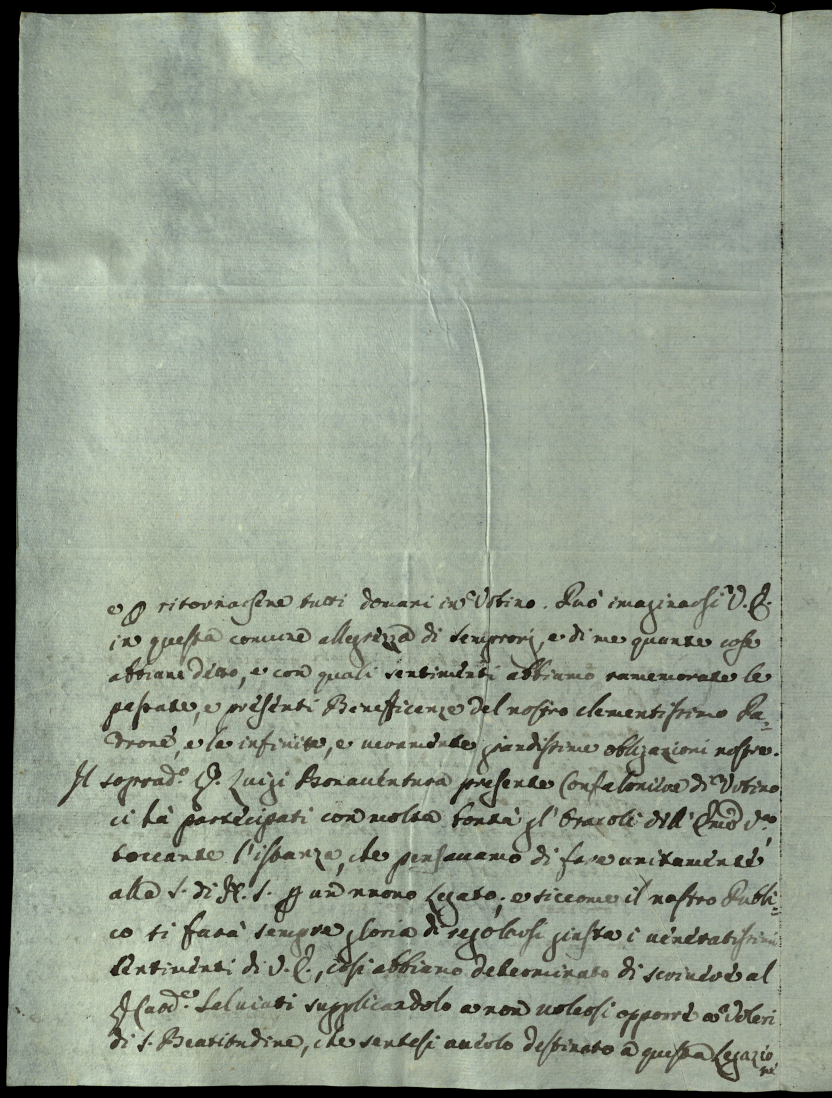 e p ritornarsene tutti domani in Urbino. Può imaginarsi V. E.
in questa comune allegrezza di Semprorj, e di me quante cose
abbiane detto, e con quali sentimenti abbiamo ramemorate le
passate, e presenti Beneficenze del nostro clementissimo Pa=
drone, e le infinite, e veramente grandissime obligazioni nostre.
Il soprad.º S. Luigi Bonaventura presente Confaloniere di Urbino
ci hà partecipati con molta bontà gl'Oracoli dell' Em̃o V.ro
toccante l'istanza, che pensavamo di fare unitamente
alla S. di N. S. p un nuovo Legato; e siccome il nostro Publi=
co si farà sempre gloria di regolarsi giusta i veneratissimi
sentimenti di V. E., così abbiamo determinato di scrivere al
S. Card.e Salviati supplicandolo a non volersi opporre a' Voleri
di S. Beatitudine, che sentesi averlo destinato à questa Legazio
ne